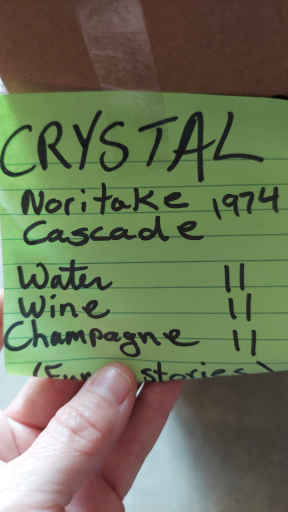 CRYSTAL
Noritake 1974
Cascade
Water 11
Wine 11
Champagne 11
stories)